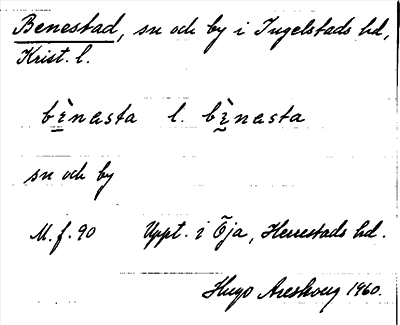 Benestad, sn och by i Ingelstads hd,
Krist. l.
bɛ̀nasta l. bɛ̀nasta
sn och by
M. f. 90 Uppt. i Öja, Herrestads hd.
Hugo Areskoug 1960.